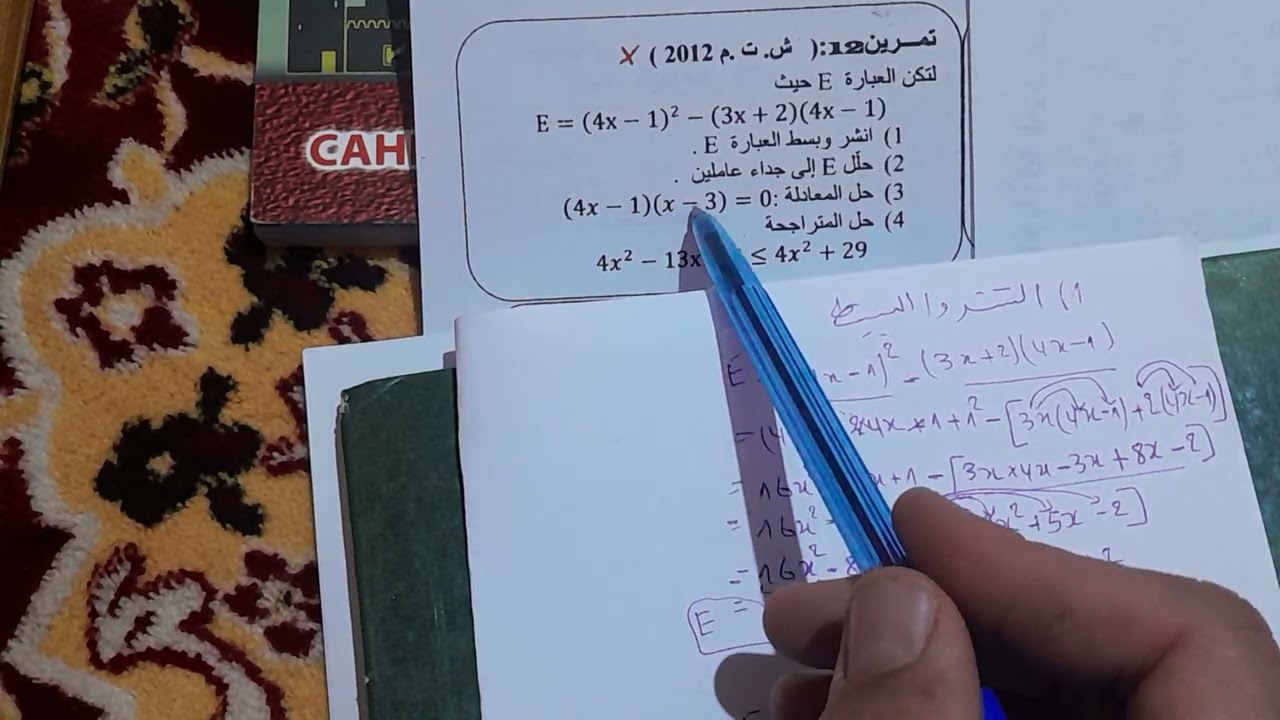 CAH
تمرين12:( ش. ت .م 2012 ) X
لتكن العبارة E حيث
E = (4x − 1)² − (3x + 2)(4x − 1)
1) انشر وبسط العبارة E .
2) حلّل E إلى جداء عاملين .
3) حل المعادلة: (4x − 1)(x − 3) = 0
4) حل المتراجحة
4x² − 13x ≤ 4x² + 29
1) النشر والتبسيط
E x − 1)² − (3x+2)(4x−1)
= (4 4x × 1 + 1² − [3x(4x−1)+2(4x−1)]
= 16x x + 1 − [3x×4x−3x+8x−2]
= 16x² x²+5x−2]
= 16x² − 8
E =